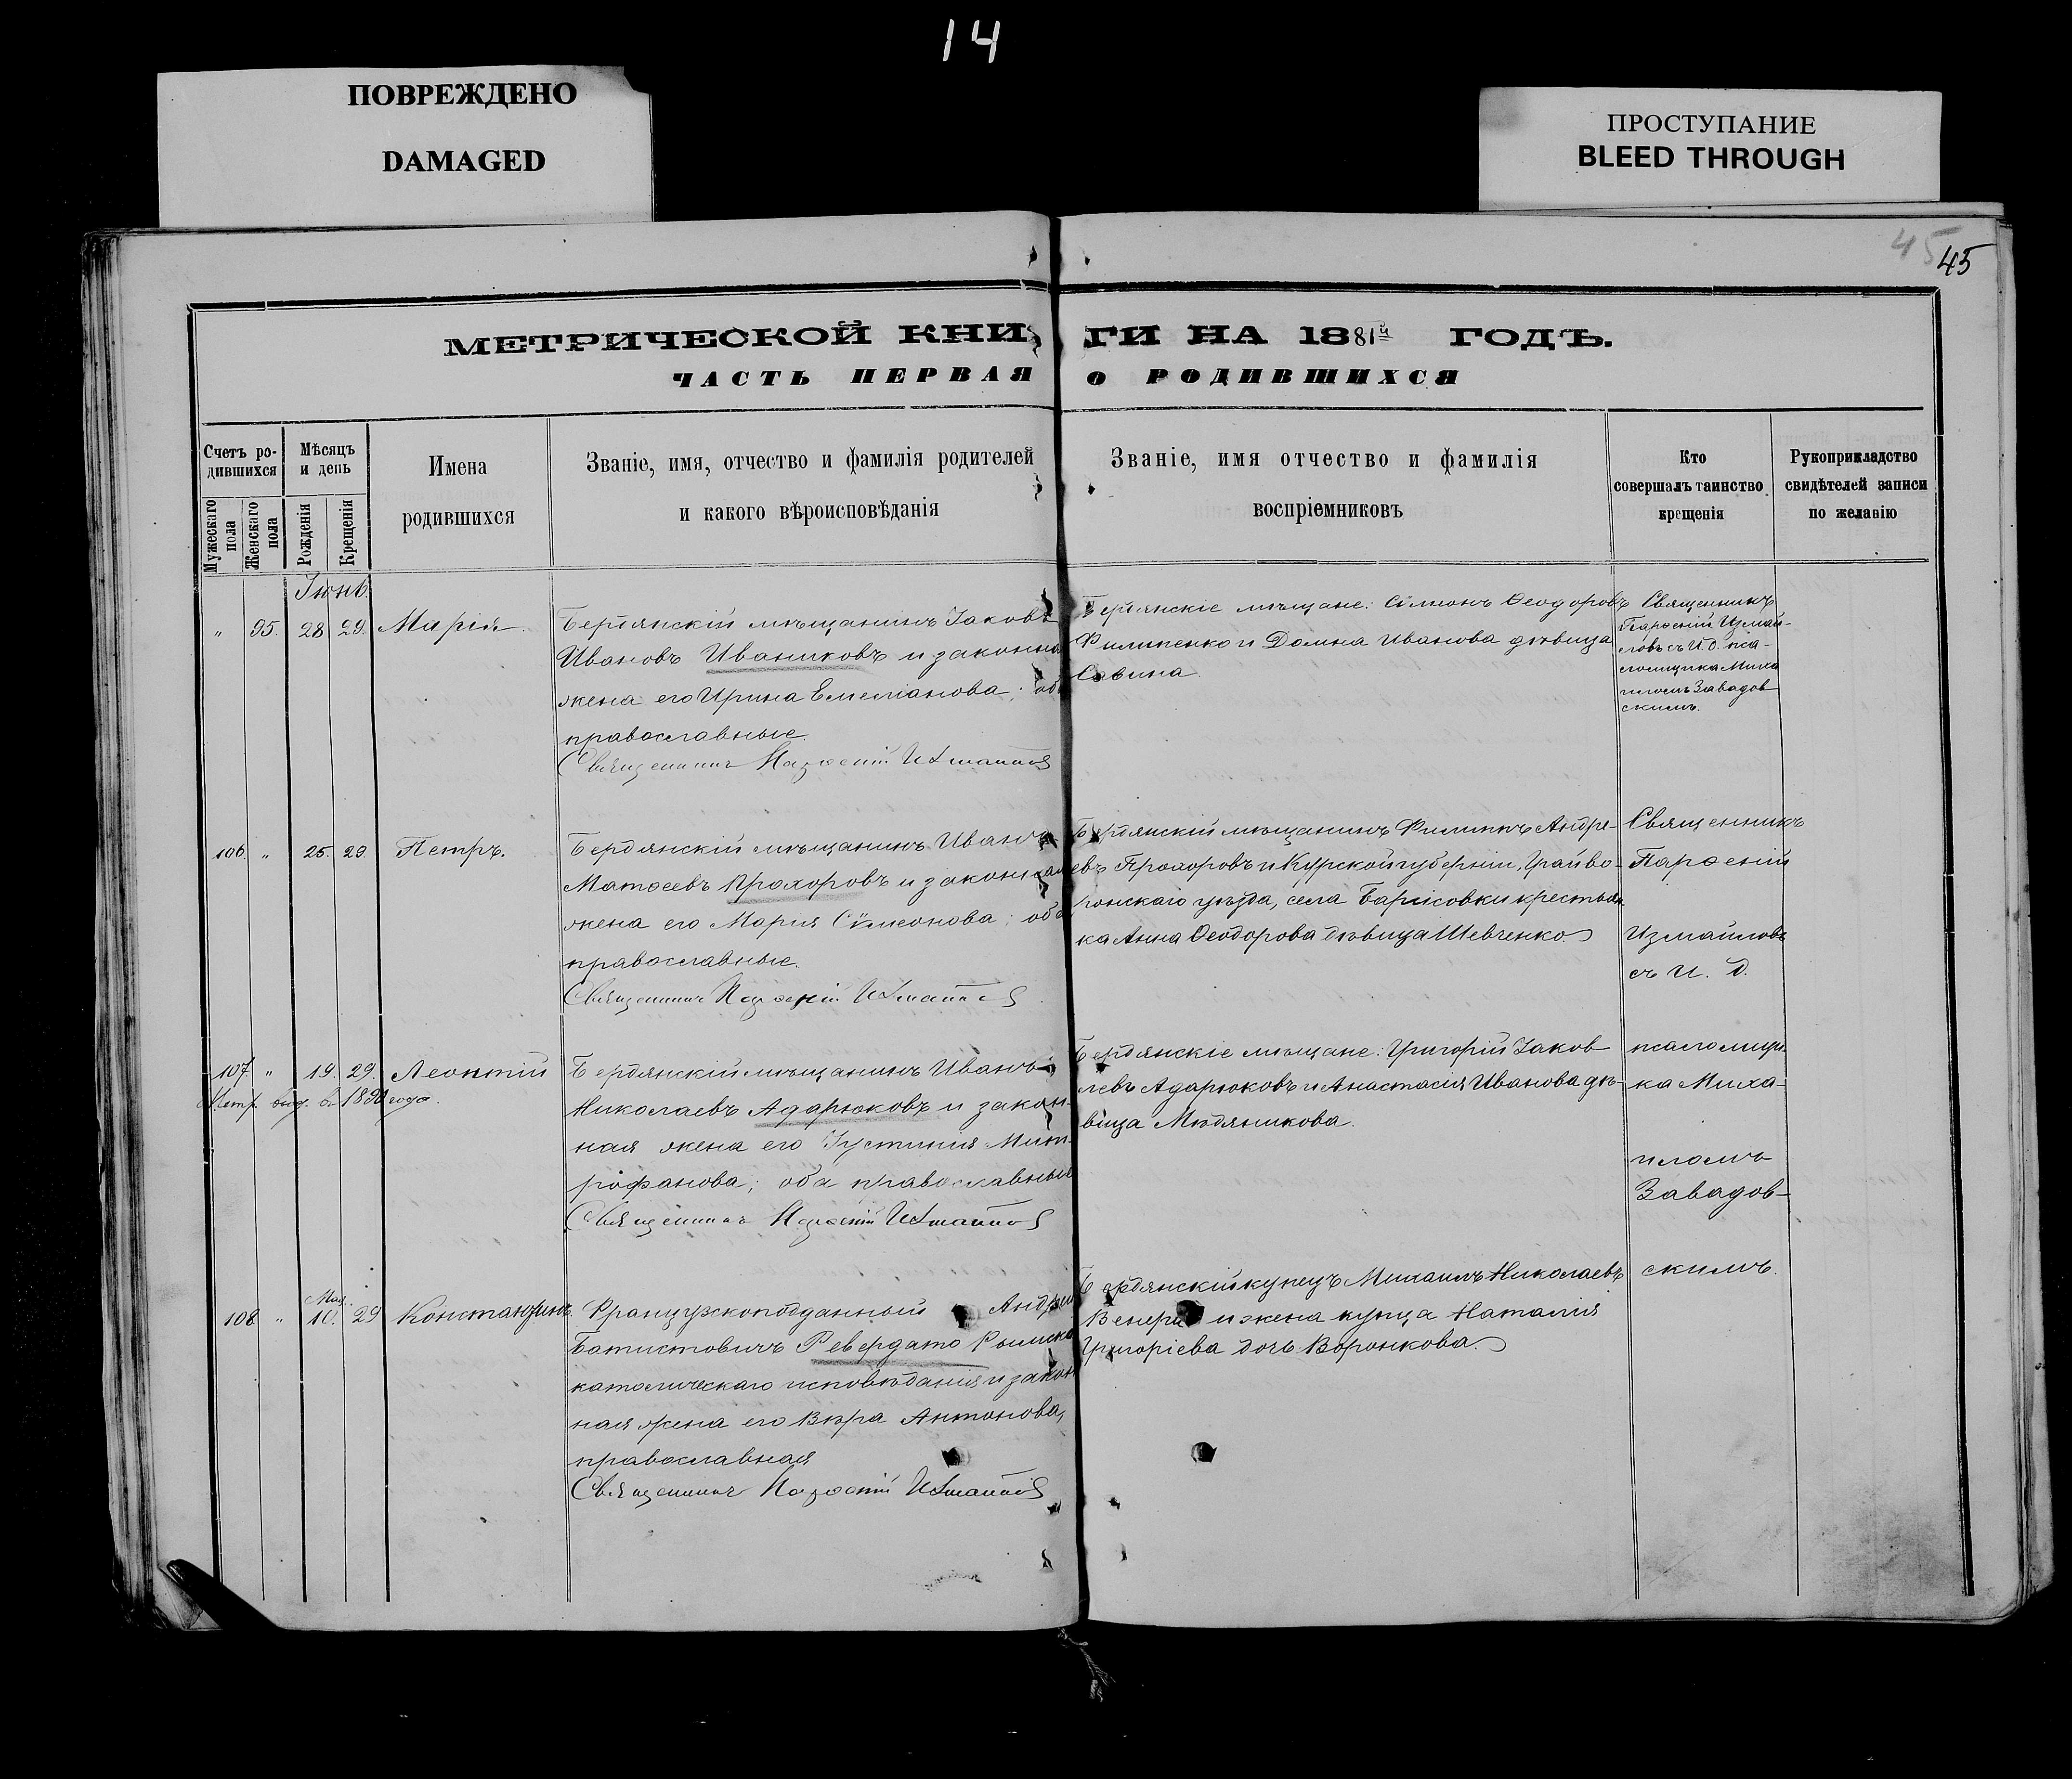 14
ПОВРЕЖДЕНО
DAMAGED
ПРОСТУПАНИЕ
BLEED THROUGH
45
45
МЕТРИЧЕСКОЙ КНИ
ГИ НА 1881й ГОДЪ.
ЧАСТЬ ПЕРВАЯ
О РОДИВШИХСЯ
Счетъ ро-
дившихся
Мужескаго пола
Женскаго пола
Мѣсяцъ
и день
Рожденія
Крещенія
Имена
родившихся
Званіе, имя, отчество и фамилія родителей
и какого вѣроисповѣданія
Званіе, имя отчество и фамилія
воспріемниковъ
Кто
совершалъ таинство
крещенія
Рукоприкладство
свидѣтелей записи
по желанію
Іюнь.
" 95. 28 29. Марія.
Бердянскій мѣщанинъ Іаковъ
Ивановъ Иваниковъ и законна
жена его Ирина Емеліанова; об
православные.
Священникъ Парѳеній Измайлов
Бердянскіе мѣщане: Сѵмеонъ Ѳеодоровъ
Филипенко и Домна Иванова дѣвица
Савина.
Священникъ
Парѳеній Измай-
ловъ съ И. О. пса-
ломщика Миха
иломъ Завадов
скимъ.
106 " 25. 29. Петръ.
Бердянскій мѣщанинъ Иванъ
Матѳеевъ Прохоровъ и законная
жена его Марія Сѵмеонова; оба
православные.
Священникъ Парѳеній Измайлов
Бердянскій мѣщанинъ Филиппъ Андре-
евъ Прохоровъ и Курской губерніи, Грайво-
ронскаго уѣзда, села Борисовки крестьян
ка Анна Ѳеодорова дѣвица Шевченко.
Священникъ
Парѳеній
Измайловъ
съ И. д.
107 " 19. 29. Леонтій
Метр. выд. въ 1890 года.
Бердянскій мѣщанинъ Иванъ
Николаевъ Адарюковъ и закон-
ная жена его Іустинія Мит-
рофанова; оба православные
Священникъ Парѳеній Измайлов
Бердянскіе мѣщане: Григорій Іаков
левъ Адарюковъ и Анастасія Иванова дѣ-
вица Мѣдяникова.
псаломщи-
ка Миха-
иломъ
Завадов-
скимъ.
Мая.
108 " 10. 29 Константинъ.
Французскоподданный Андрей
Батистовичъ Ревердато Римско
католическаго исповѣданія и закон
ная жена его Вѣра Антонова,
православная
Священникъ Парѳеній Измайлов
Бердянскій купецъ Михаилъ Николаевъ
и жена купца Наталія
Григоріева дочь Воронкова.